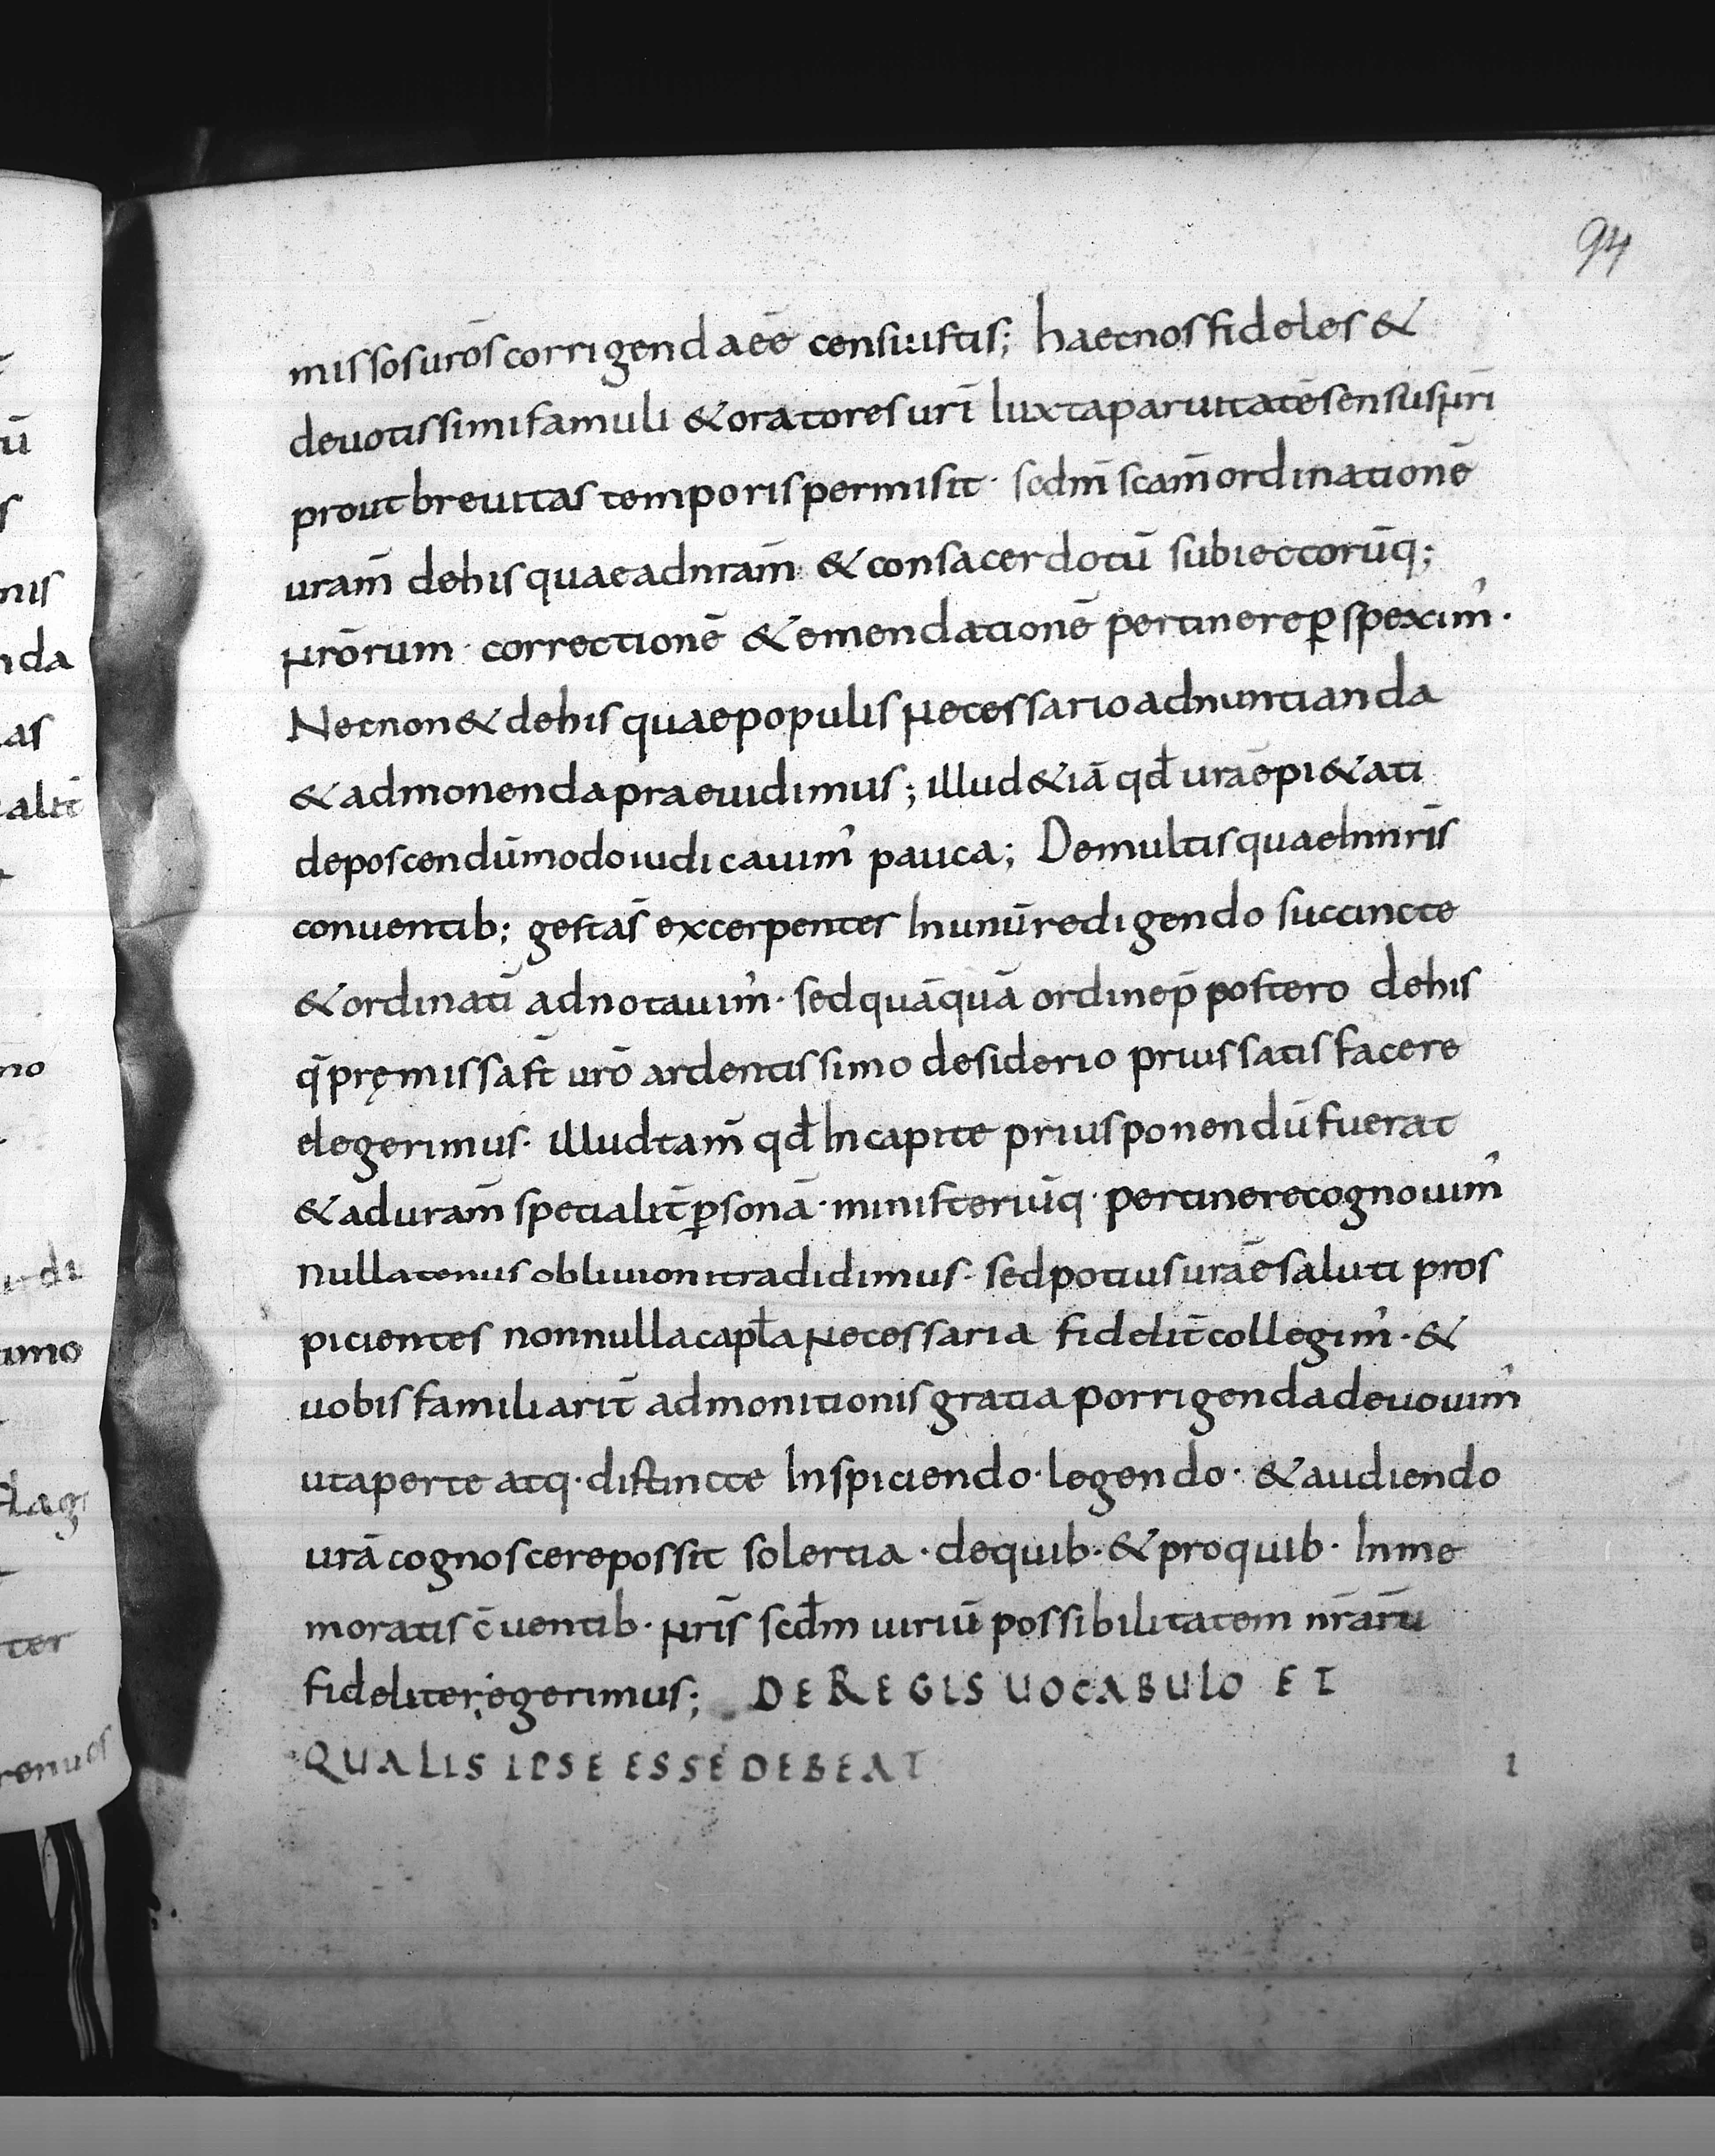 94
missos uros corrigenda eē censuistis; haec nos fideles &
deuotissimi famuli & oratores urī Iuxta paruitatē sensus nr̄i
prout breuitas temporis permisit· sedm̄ scam̄ ordinationē
uram̄ de his quae ad nram̄ & consacerdotū subiectorūq;
nrōrum· correctionē & emendationē pertinere ꝑspexim̂·
Nec non & de his quae populis necessario adnuntianda
& admonenda praeuidimus; illud &iā qđ urāe pi&ati
deposcendū modo iudicauim̂ pauca; De multis quae In nrīs
conuentib; gestas̄ excerpentes In unū redigendo succincte
& ordinatī adnotauim̂· sed quāquā ordine p̄postero de his
q̄ pręmissa st̄ urō ardentissimo desiderio prius satisfacere
elegerimus· illud tam̄ qđ In capite prius ponendū fuerat
& ad uram̄ specialit̄ ꝑsonā· ministeriūq· pertinere cognouim̂
nullatenus obliuioni tradidimus· sed potius urāe saluti pros
picientes nonnulla capłta necessaria fidelit̄ collegim̂· &
uobis familiarit̄ admonitionis gratia porrigenda deuouim̂
ut aperte atq· distincte Inspiciendo· legendo· & audiendo
urā cognoscere possit solertia· de quib· & pro quib· In me
moratis c̄uentib· nrīs scđm uiriū possibilitatem nr̄arū
fideliter egerimus; DE REGIS UOCABULO ET
QUALIS IPSE ESSE DEBEAT I